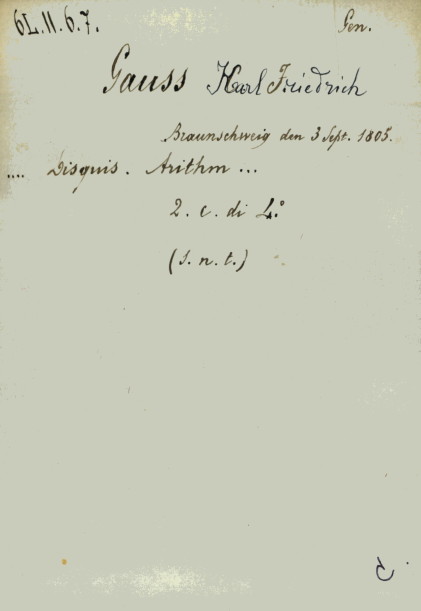 6L.11.6.7. Gen.
Gauss Karl Friedrich
Braunschweig den 3 Sept. 1805.
.... Disquis. Arithm ...
2. c. di 4.º
(s. n. t.)